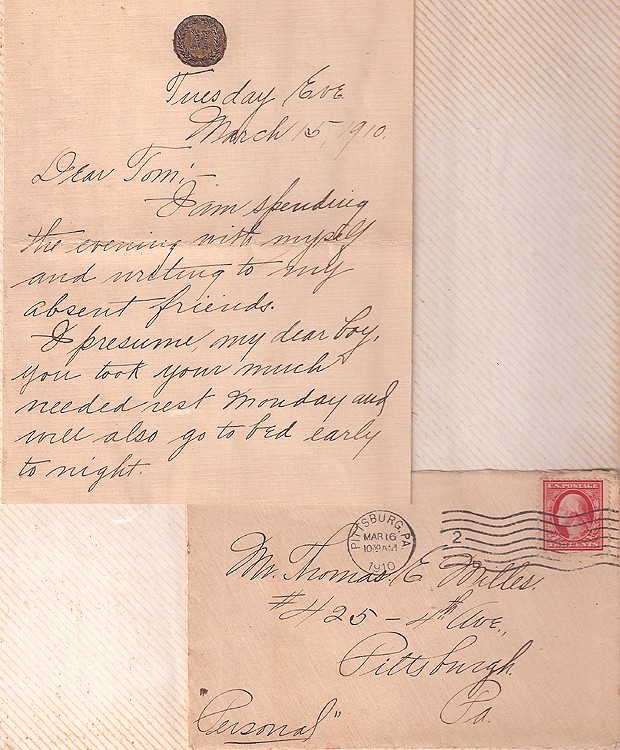 Tuesday Eve.
March 15, 1910.
Dear Tom;–
I am spending
the evening with myself
and writing to my
absent friends.
I presume, my dear boy,
you took your much
needed rest Monday and
will also go to bed early
to night.
U.S. POSTAGE
PITTSBURG, PA.
MAR 16
1910
2
Mr. Thomas E. Miller.
#425 – 4th Ave.,
Pittsburgh.
Pa.
"Personal"